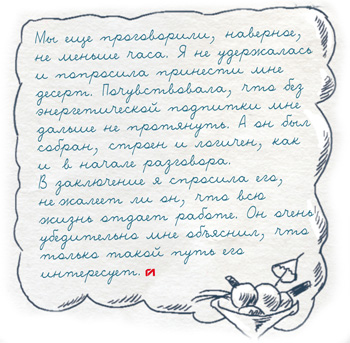 Мы еще проговорили, наверное,
не меньше часа. Я не удержалась
и попросила принести мне
десерт. Почувствовала, что без
энергетической подпитки мне
дальше не протянуть. А он был
собран, строен и логичен, как
и в начале разговора.
В заключение я спросила его,
не жалеет ли он, что всю
жизнь отдает работе. Он очень
убедительно мне объяснил, что
только такой путь его
интересует.